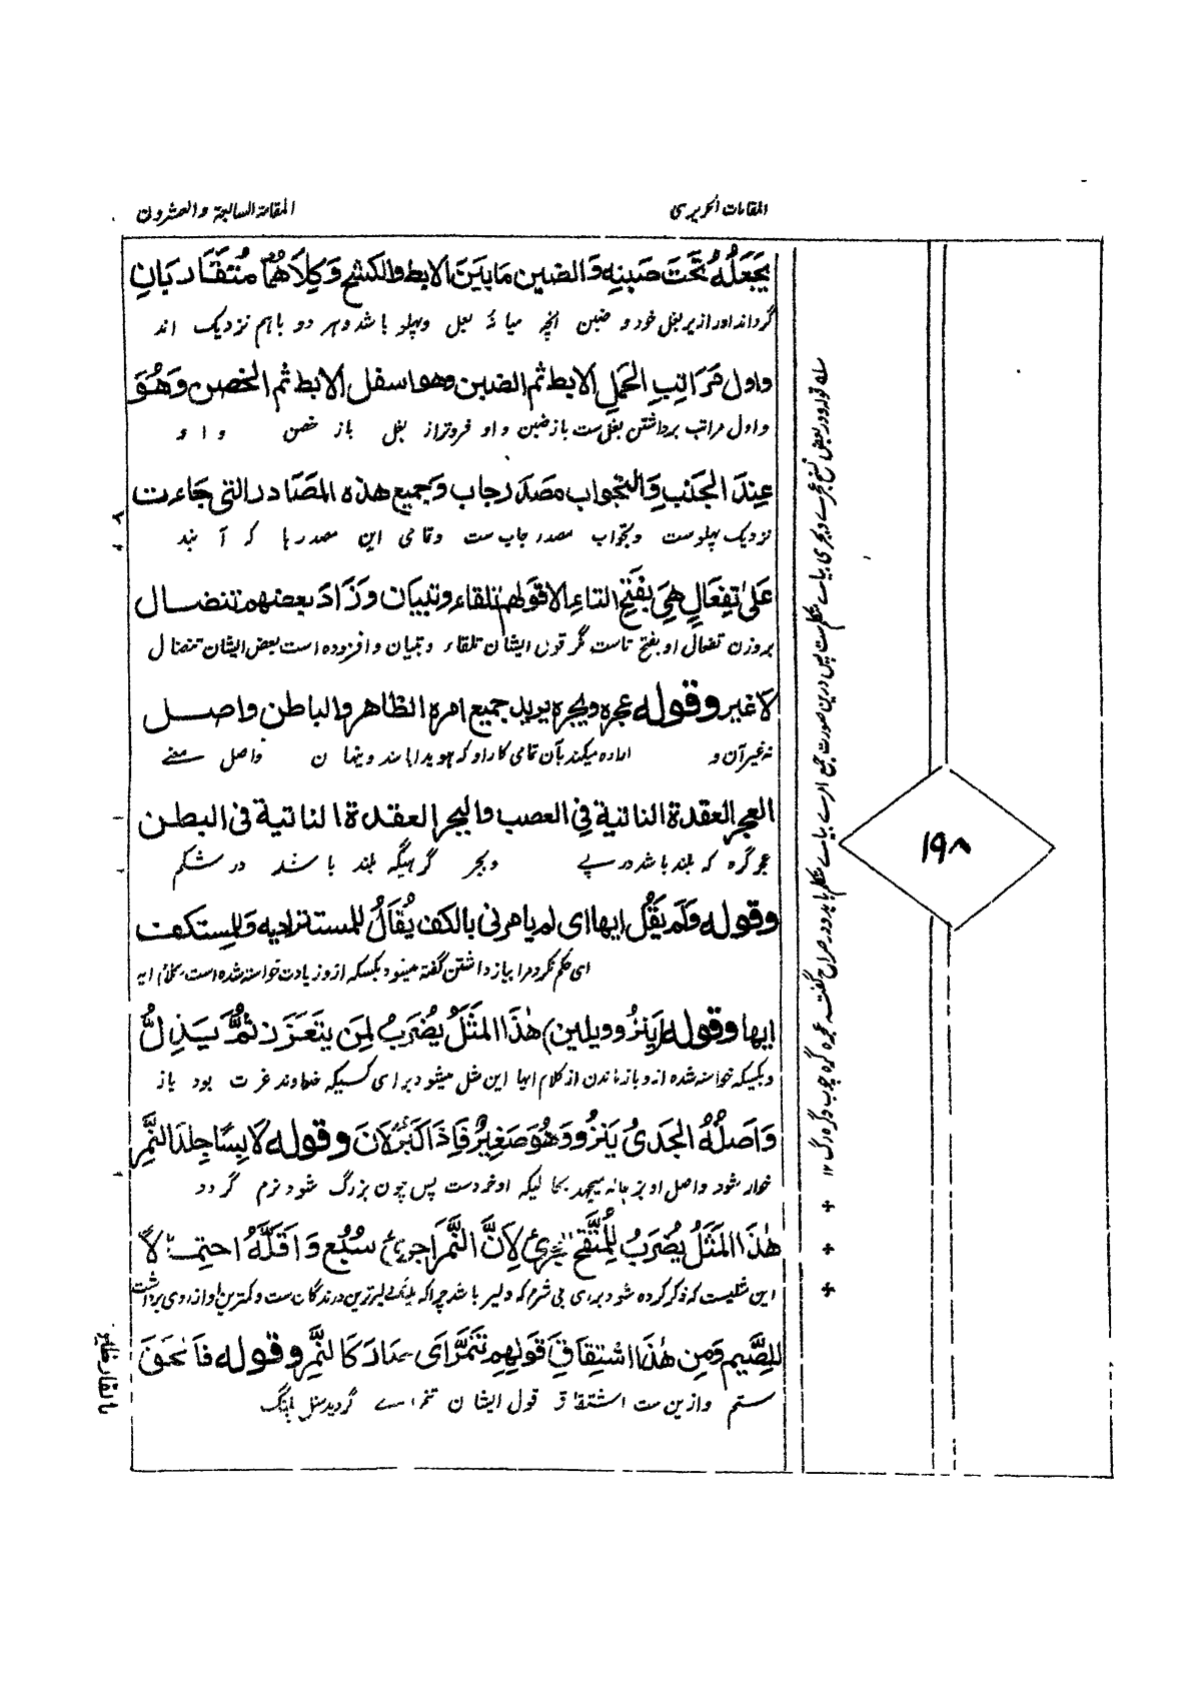 المقامات الحریری
المقامة السابعة والعشرون
یَجعَلُهُ تَحتَ ضَبنِهِ وَالضبن مَا بَینَ الابط والکشح وَکِلَاهُمَا مُتَقَارِبَانِ
گرداند اورا زیر بغل خود و ضبن انچه میانهٔ بغل وپهلو باشد وهر دو باهم نزدیک اند
واول مَرَاتِبِ الحَملِ الابط ثم الضبن وهو اسفل الابط ثم الحضن وَهُوَ
واول مراتب برداشتن بغل ست باز ضبن و او فروتر از بغل باز حضن و او
عِندَ الجَنبِ وَالتجواب مصدر جاب وَجمیع هذه المَصَادر التی جَاءت
نزدیک پهلوست وتجواب مصدر جاب ست وتمامی این مصدرها که آمد
عَلیٰ تَفعَالٍ هِیَ بِفَتحِ التاء الا قَولهم تلقاء وتبیان وَزَادَ بعضهم تنضال
بروزن تفعال او بفتح تاست مگر قول ایشان تلقاء وتبیان وافزوده است بعض ایشان تنضال
لا غیر وقوله عجره وبجره یرید جمیع امره الظاهر والباطن واصل
نه غیرآن و اراده میکند بآن تمامی کار او که هویدا باشد وپنهان واصل معنے
العجر العقدة الناتیة فی العصب والبجر العقدة الناتیة فی البطن
عجر گره که بلند باشد در پے وبجر گرهیکه بلند باشد در شکم
وقوله وَلَم یَقُل ایها ای لم یامرنی بالکف یُقَالُ للمستزاد ایه وَللمستکف
ای حکم نکرد مرا بباز داشتن گفته میشود بکسیکه ازو زیادت خواسته شده است بکلام ایه
ایها وقوله (یَنزُو ویلین) هٰذَا المَثَلُ یُضرَبُ لِمَن یتعَزَّز ثُمَّ یَذِلُّ
وبکسیکه خواسته شده ازو باز ماندن از کلام ایها این مثل میشود برای کسیکه خداوند عزت بود باز
وَاَصلُهُ الجَدیُ یَنزُو وَهُوَ صَغِیرٌ فَاِذَا کَبُرَ لَانَ وقوله لابسًا جِلدَ النَّمِرِ
خوار شود واصل او بزجانه میجهد بحالیکه او خردست پس چون بزرگ شود نرم گردد
هٰذَا المَثَلُ یُضرَبُ لِلمُتَّقِحِ الجَرِیِّ لِاَنَّ النَّمِرَ اجریٰ سَبُعٍ وَاَقَلُّهُ احتِمَالًا
این مثلیست که ذکر کرده شود برای بی شرم که دلیر باشد چراکه پلنگ دلیرترین درندگان ست وکمترین او از روی برداشت
لِلضَّیمِ وَمِن هٰذَا اشتِقَاقُ قَولِهِم تَنَمَّرَ ای صَارَ کَالنَّمِرِ وقوله فَالحَقَ
ستم وازین ست اشتقاق قول ایشان تنمر اے گردید مثل پلنگ
۱۹۸